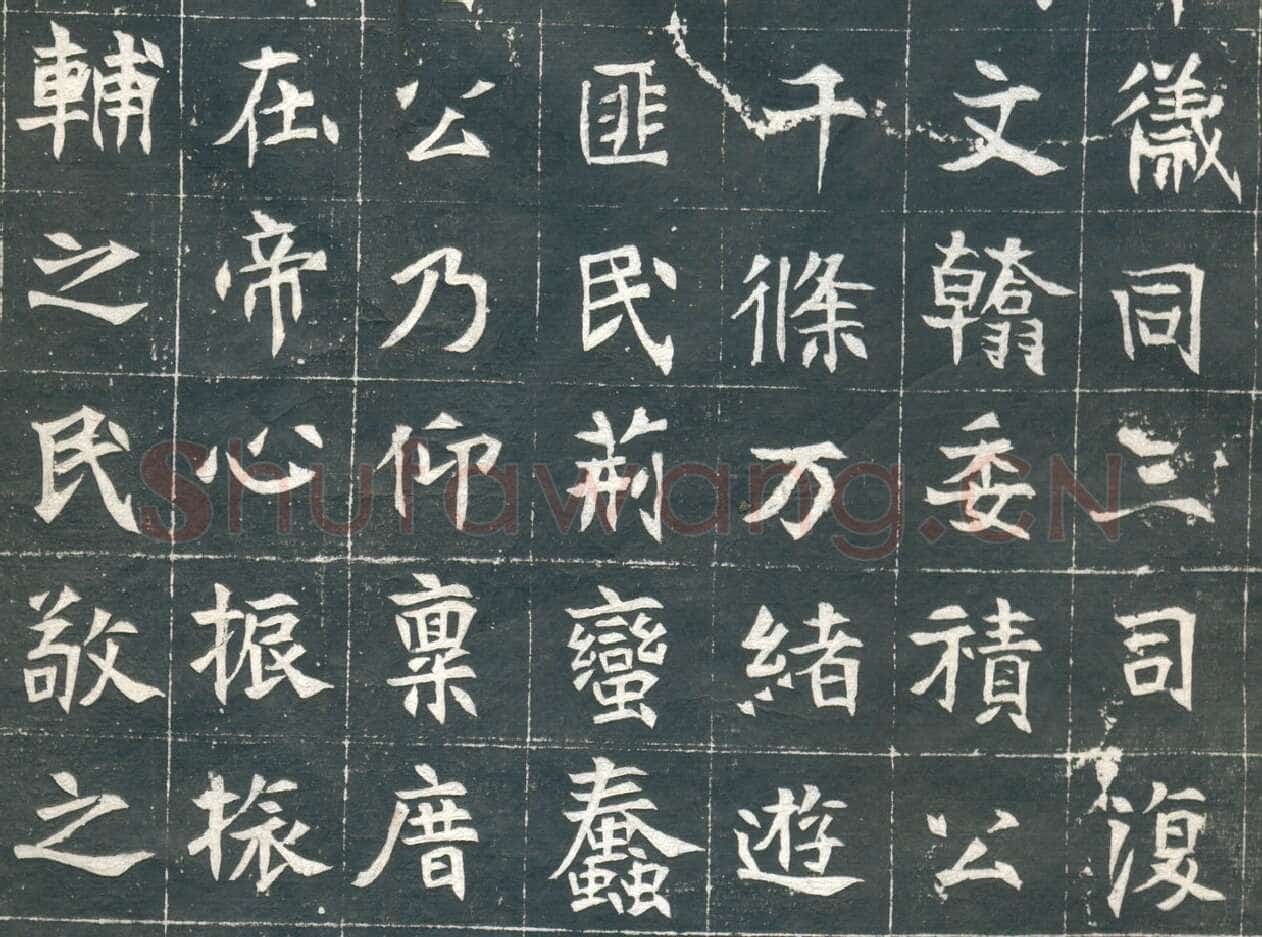 儀同三司復
文翰委積公
千條万緒遊
匪民荊蠻蠢
公乃仰稟厝
在帝心振振
輔之民敬之
Shufawang.CN